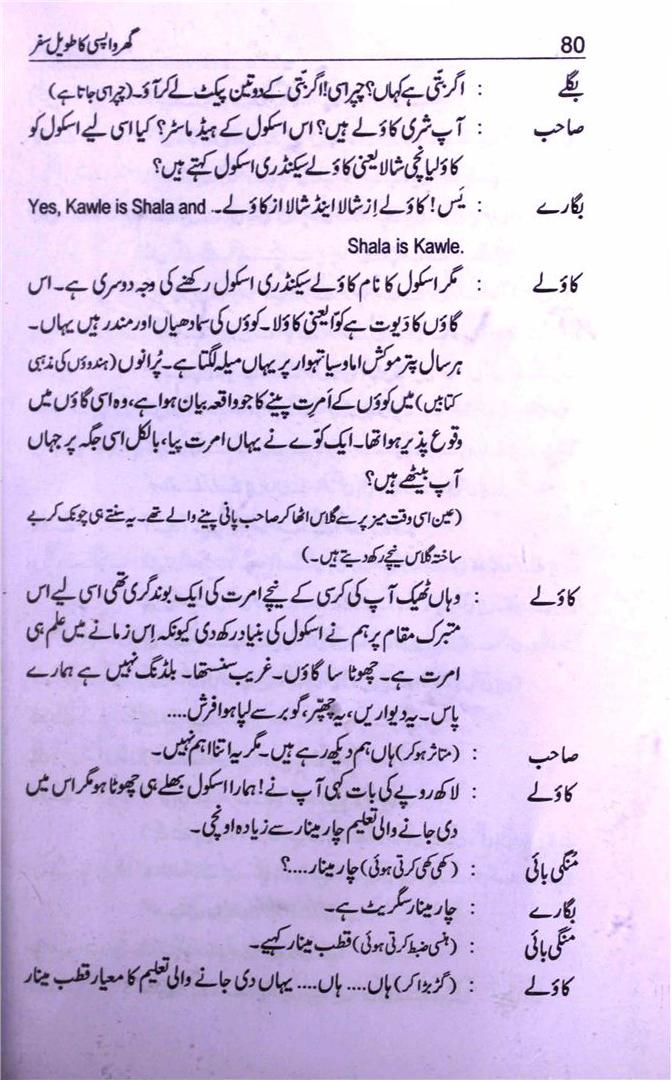 80 گھر واپسی کا طویل سفر
بگلے : اگر بتّی ہے کہاں؟ چپراسی! اگر بتّی کے دو تین پیکٹ لے کر آؤ۔ (چپراسی جاتا ہے)
صاحب : آپ شری کاؤلے ہیں؟ اس اسکول کے ہیڈ ماسٹر؟ کیا اسی لیے اسکول کو
کاؤلیانچی شالا یعنی کاؤلے سیکنڈری اسکول کہتے ہیں؟
بگارے : یَس! کاؤلے اِز شالا اینڈ شالا از کاؤلے۔ Yes, Kawle is Shala and
Shala is Kawle.
کاؤلے : مگر اسکول کا نام کاؤلے سیکنڈری اسکول رکھنے کی وجہ دوسری ہے۔ اس
گاؤں کا دَیوت ہے کوّا یعنی کاؤلا۔ کوؤں کی سمادھیاں اور مندر ہیں یہاں۔
ہر سال پتر موکش اماوسیا تہوار پر یہاں میلہ لگتا ہے۔ پُرانوں (ہندوؤں کی مذہبی
کتابیں) میں کوؤں کے اَمرِت پینے کا جو واقعہ بیان ہوا ہے، وہ اسی گاؤں میں
وقوع پذیر ہوا تھا۔ ایک کوّے نے یہاں امرت پیا، بالکل اسی جگہ پر جہاں
آپ بیٹھے ہیں؟
(عین اسی وقت میز پر سے گلاس اٹھا کر صاحب پانی پینے والے تھے۔ یہ سنتے ہی چونک کر بے
ساختہ گلاس نیچے رکھ دیتے ہیں۔)
کاؤلے : وہاں ٹھیک آپ کی کرسی کے نیچے امرت کی ایک بوند گری تھی اسی لیے اس
متبرک مقام پر ہم نے اسکول کی بنیاد رکھ دی کیونکہ اِس زمانے میں علم ہی
امرت ہے۔ چھوٹا سا گاؤں۔ غریب سنستھا۔ بلڈنگ نہیں ہے ہمارے
پاس۔ یہ دیواریں، یہ چھپّر، گوبر سے لپا ہوا فرش....
صاحب : (متاثر ہو کر) ہاں ہم دیکھ رہے ہیں۔ مگر یہ اتنا اہم نہیں۔
کاؤلے : لاکھ روپے کی بات کہی آپ نے! ہمارا اسکول بھلے ہی چھوٹا ہو مگر اس میں
دی جانے والی تعلیم چار مینار سے زیادہ اونچی۔
منگی بائی : (کھی کھی کرتی ہوئی) چار مینار....؟
بگارے : چار مینار سگریٹ ہے۔
منگی بائی : (ہنسی ضبط کرتی ہوئی) قطب مینار کہیے۔
کاؤلے : (گڑبڑا کر) ہاں.... ہاں.... یہاں دی جانے والی تعلیم کا معیار قطب مینار